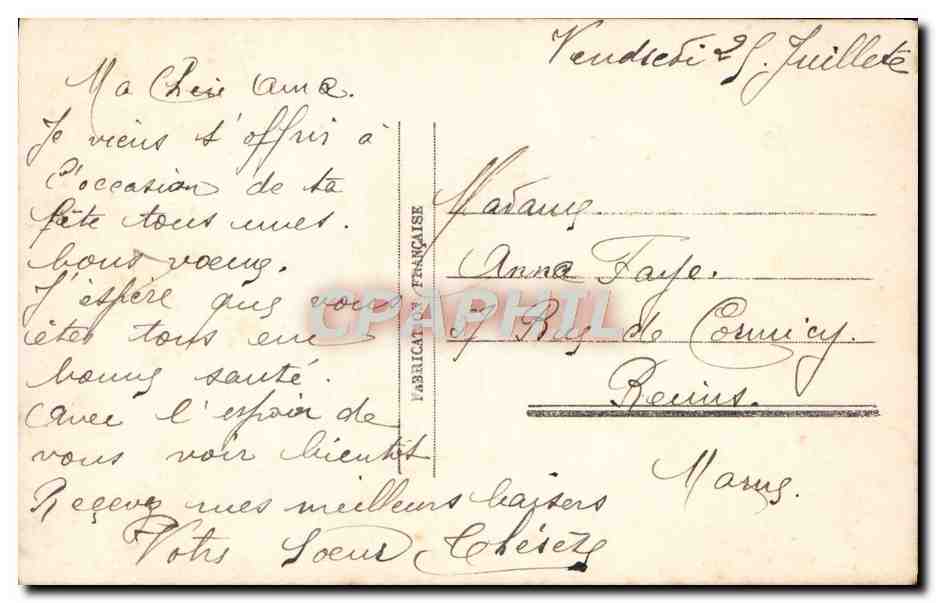 Vendredi 25 Juillete
Ma Chère Anna.
Je viens t'offrir à
l'occasion de ta
fête tous mes.
bons vœux.
J'espère que vous
êtes tous en
bonne santé.
Avec l'espoir de
vous voir bientôt
Recevez mes meilleurs baisers
Votre Soeur Thérèse
FABRICATION FRANÇAISE
Madame
Anna Faye.
Rue de Cormicy.
Reims.
Marne.
CPAPHIL